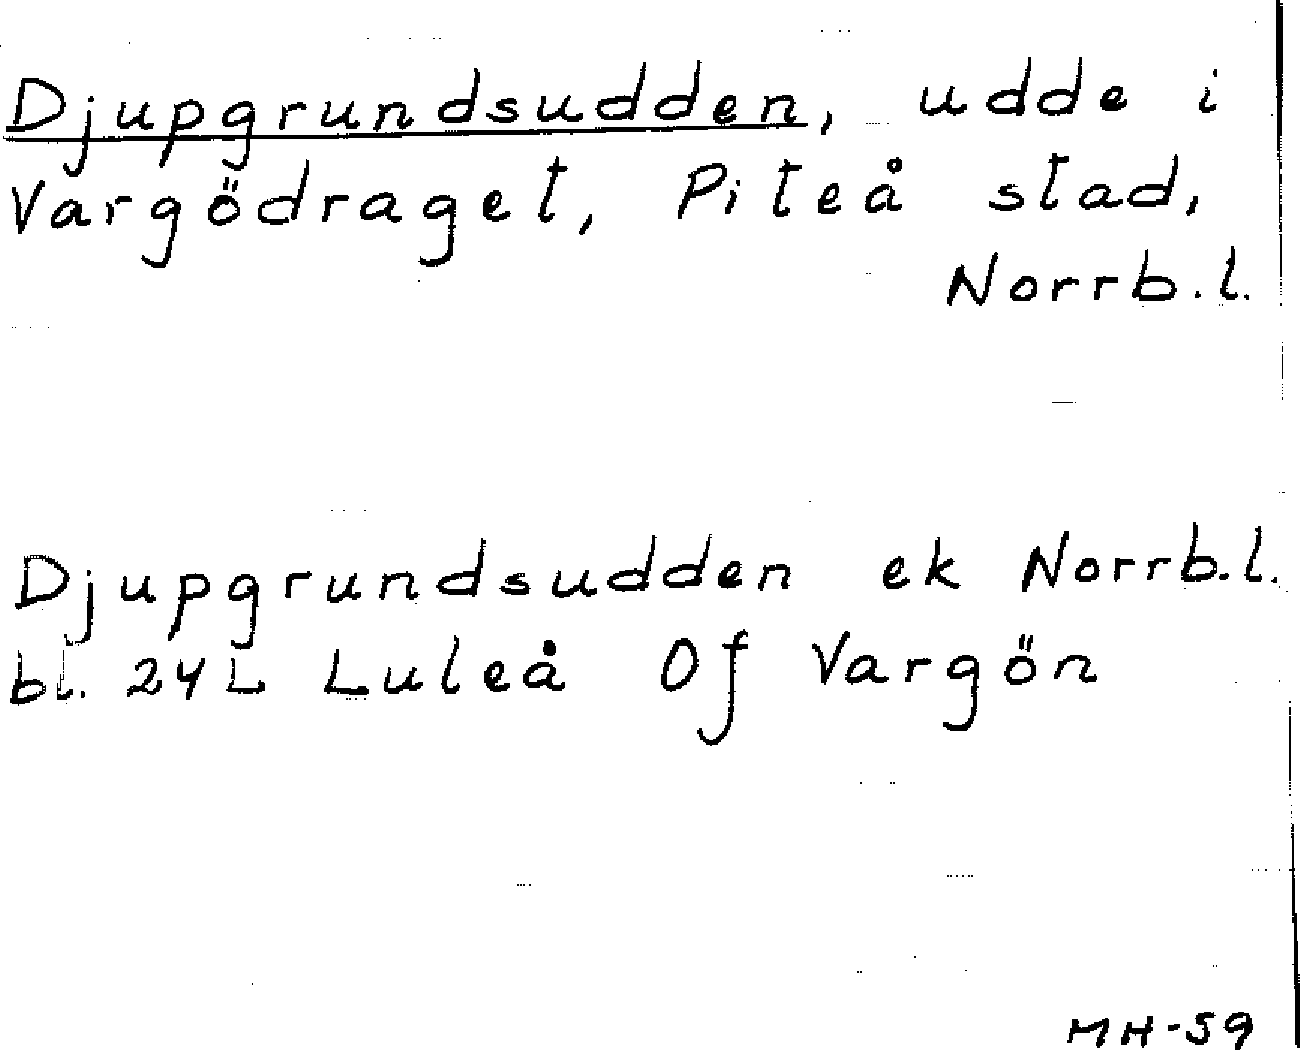 Djupgrundsudden, udde i
Vargödraget, Piteå stad,
Norrb.l.
Djupgrundsudden ek Norrb.l.
bl. 24L Luleå Of Vargön
MH-59